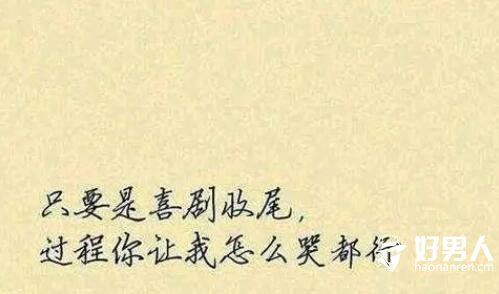 只要是喜剧收尾，
过程你让我怎么哭都行
好男人
haonanren.com